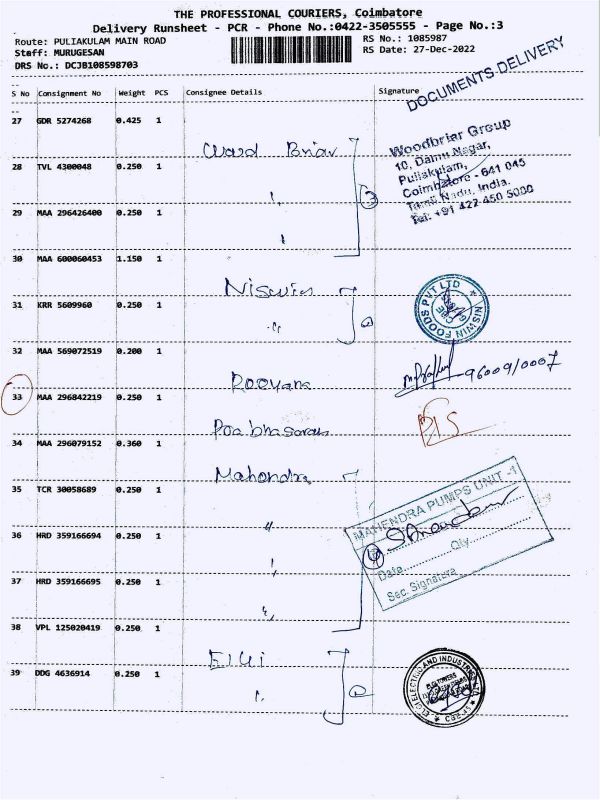 THE PROFESSIONAL COURIERS, Coimbatore
Delivery Runsheet - PCR - Phone No.:0422-3505555 - Page No.:3
Route: PULIAKULAM MAIN ROAD RS No.: 1085987
Staff: MURUGESAN RS Date: 27-Dec-2022
DRS No.: DCJB108598703
DOCUMENTS DELIVERY
S No Consignment No Weight PCS Consignee Details Signature
27 GDR 5274268 0.425 1
Woodbriar Group
10, Damu Nagar,
Puliakulam,
Coimbatore - 641 045
Tamil Nadu, India.
Tel: +91 422 450 5000
Word Briar
28 TVL 4300048 0.250 1
"
3
29 MAA 296426400 0.250 1
"
30 MAA 600060453 1.150 1
Niswin
NISWIN FOODS PVT LTD
31 KRR 5609960 0.250 1
"
32 MAA 569072519 0.200 1
96009/0007
33 MAA 296842219 0.250 1
34 MAA 296079152 0.360 1
Mahendra
35 TCR 30058689 0.250 1
MAHENDRA PUMPS UNIT -1
"
36 HRD 359166694 0.250 1
4
Date Qty
Sec. Signature
"
37 HRD 359166695 0.250 1
"
38 VPL 125020419 0.250 1
Elgi
ELGI ELECTRIC AND INDUSTRIES LTD
CBE-45
39 DDG 4636914 0.250 1
"